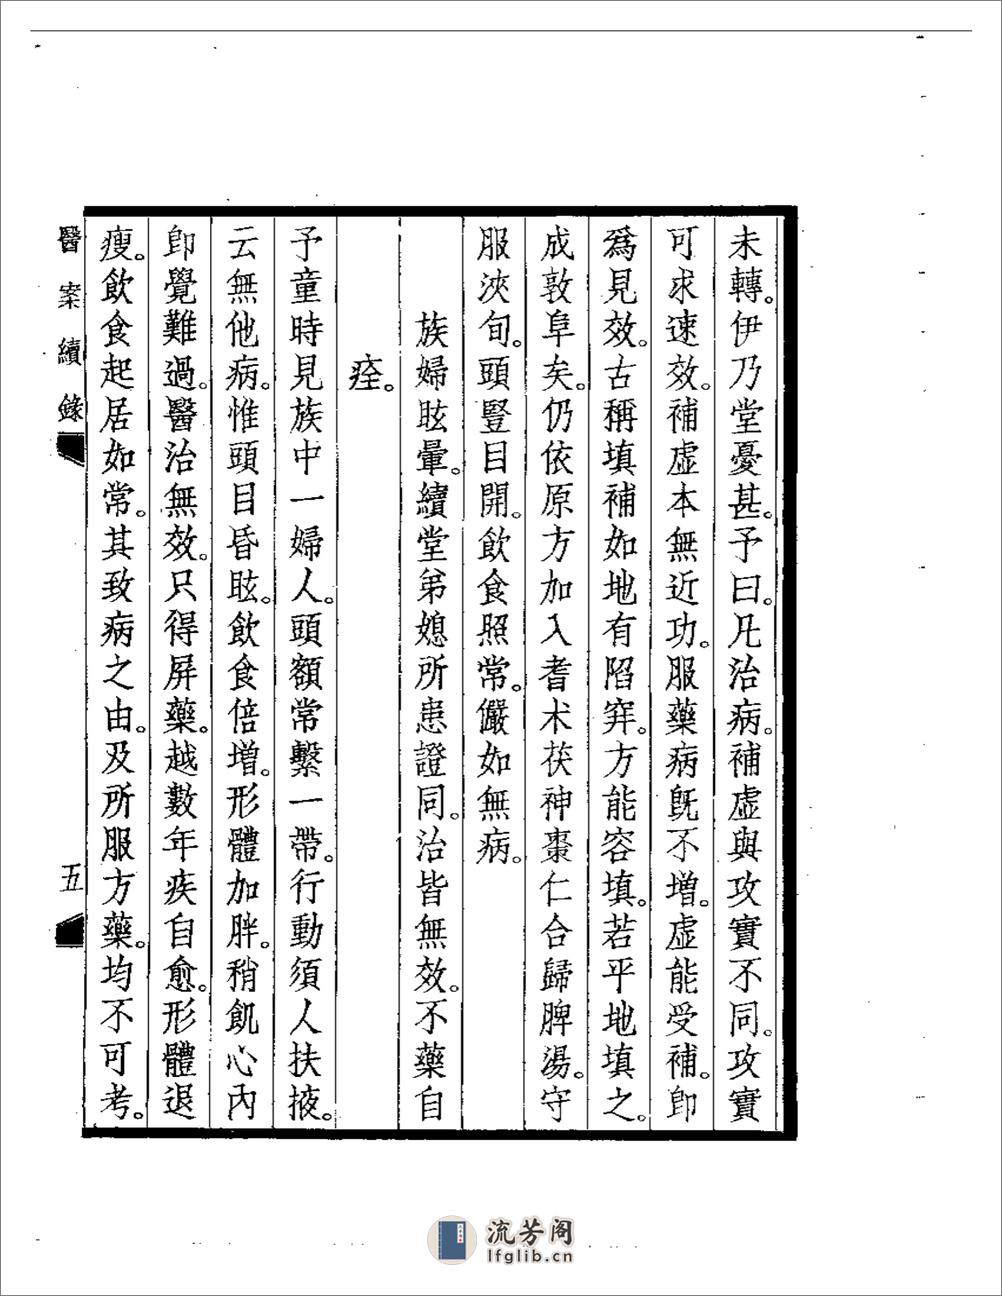 未轉。伊乃堂憂甚。予曰。凡治病。補虛與攻實不同。攻實
可求速效。補虛本無近功。服藥病旣不增。虛能受補。卽
爲見效。古稱填補如地有陷穽。方能容填。若平地填之。
成敦阜矣。仍依原方加入耆朮茯神棗仁合歸脾湯。守
服浹旬。頭豎目開。飲食照常。儼如無病。
族婦眩暈。續堂弟媳所患證同。治皆無效。不藥自
痊。
予童時見族中一婦人。頭額常繫一帶。行動須人扶掖。
云無他病。惟頭目昏眩。飲食倍增。形體加胖。稍飢心內
卽覺難過。醫治無效。只得屏藥。越數年疾自愈。形體退
瘦。飲食起居如常。其致病之由。及所服方藥。均不可考。
醫案續錄
五
流芳阁
lfglib.cn